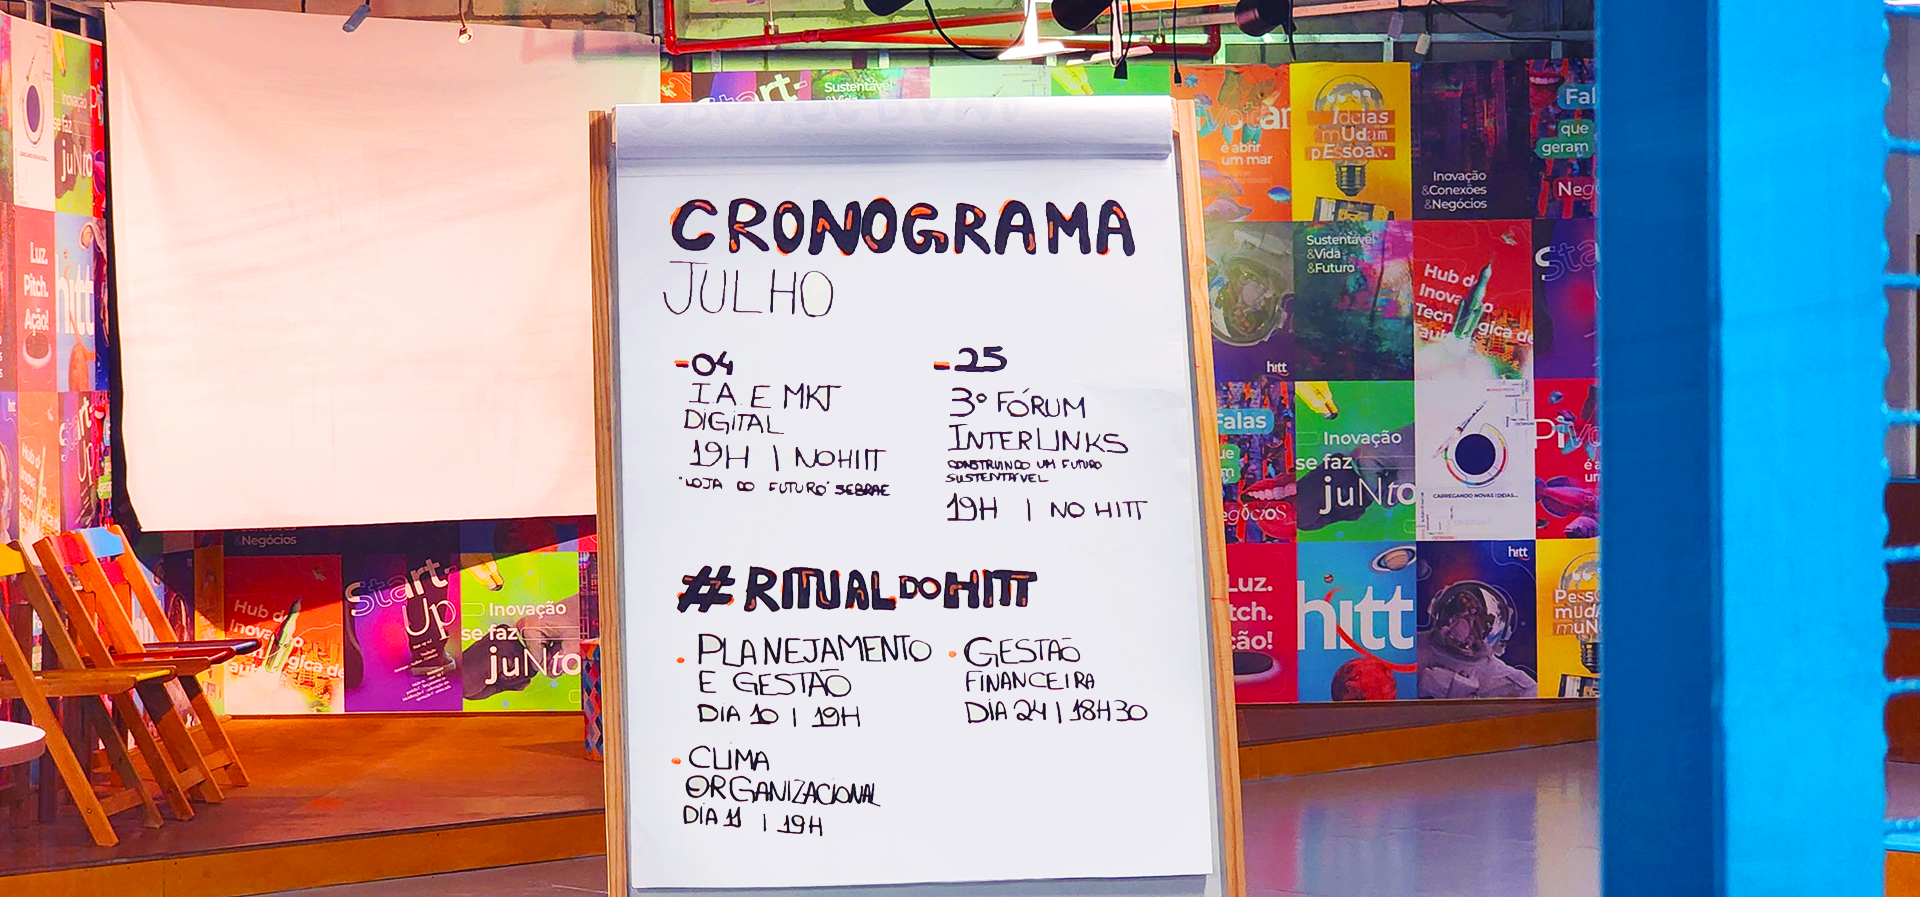 CRONOGRAMA
JULHO
-04
I.A. E MKT
DIGITAL
19H | NO HITT
"LOJA DO FUTURO" SEBRAE
-25
3º FÓRUM
INTERLINKS
CONSTRUINDO UM FUTURO
SUSTENTÁVEL
19H | NO HITT
#RITUAL DO HITT
. PLANEJAMENTO
E GESTÃO
DIA 10 | 19H
. GESTÃO
FINANCEIRA
DIA 24 | 18H30
. CLIMA
ORGANIZACIONAL
DIA 11 | 19H
Inovação
se faz
juNto
Luz.
Pitch.
Ação!
hitt
&Negócios
Hub d
Inova
Start-
Up
Inovação
se faz
juNto
Start-
Sustentável
&Vida
é abrir
um mar
Ideias
mUdam
pEssoas.
Inovação
&Conexões
&Negócios
Fal
que
geram
Neg
hitt
Sustentável
&Vida
&Futuro
Hub d
Inova
Tecn
gica de
Sta
Falas
Inovação
se faz
juNto
CARREGANDO NOVAS IDEIAS...
Pivo
Luz.
tch.
ção!
hitt
hitt